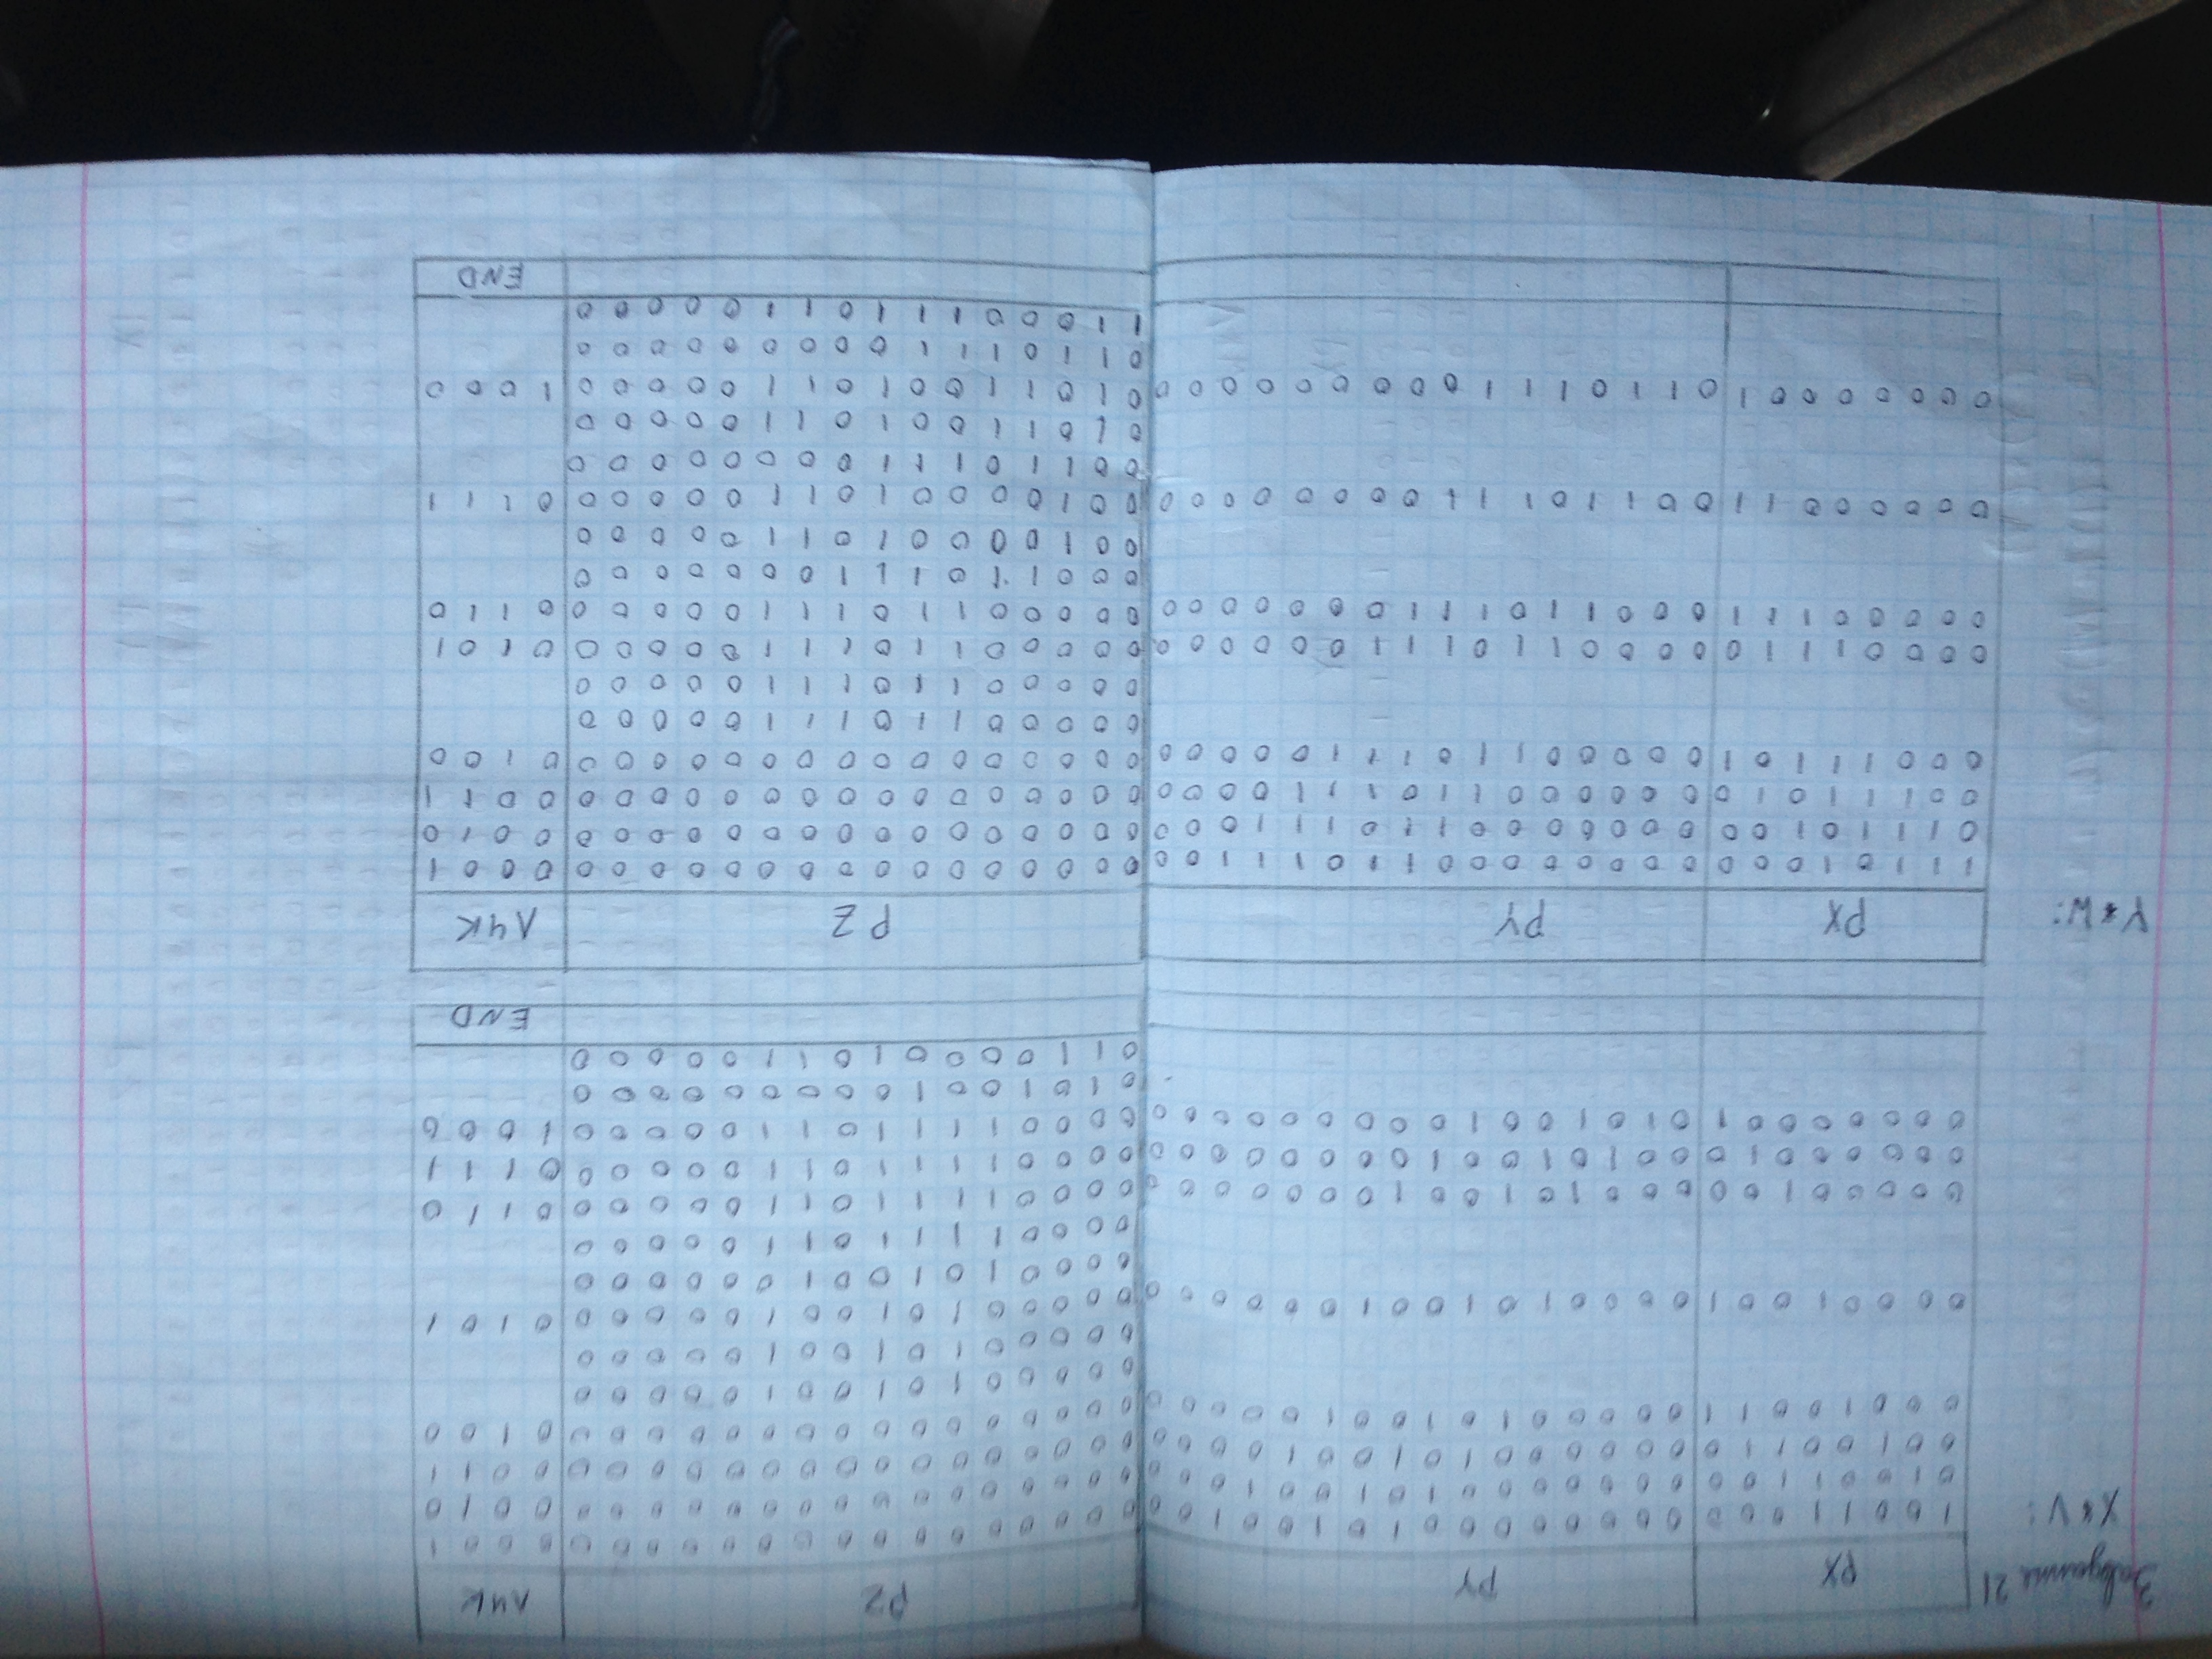 Завдання 21 РХ РY PZ ЛЧК
X*V: 1 0 0 1 1 0 0 0 0 0 0 0 0 0 0 0 1 0 1 0 0 1 0 0 0 0 0 0 0 0 0 0 0 0 0 0 0 0 0 0 0 0 0 1
0 1 0 0 1 1 0 0 0 0 0 0 0 0 0 1 0 1 0 0 1 0 0 0 0 0 0 0 0 0 0 0 0 0 0 0 0 0 0 0 0 0 1 0
0 0 1 0 0 1 1 0 0 0 0 0 0 0 1 0 1 0 0 1 0 0 0 0 0 0 0 0 0 0 0 0 0 0 0 0 0 0 0 0 0 0 1 1
0 0 0 1 0 0 1 1 0 0 0 0 0 1 0 1 0 0 1 0 0 0 0 0 0 0 0 0 0 0 0 0 0 0 0 0 0 0 0 0 0 1 0 0
0 0 0 0 0 1 0 1 0 0 1 0 0 0 0 0
0 0 0 0 0 1 0 1 0 0 1 0 0 0 0 0
0 0 0 0 1 0 0 1 0 0 0 0 1 0 1 0 0 1 0 0 0 0 0 0 0 0 0 0 0 1 0 1 0 0 1 0 0 0 0 0 0 1 0 1
0 0 0 0 1 0 1 0 0 1 0 0 0 0 0 0
0 0 0 0 1 1 1 1 0 1 1 0 0 0 0 0
0 0 0 0 0 1 0 0 0 0 0 1 0 1 0 0 1 0 0 0 0 0 0 0 0 0 0 0 1 1 1 1 0 1 1 0 0 0 0 0 0 1 1 0
0 0 0 0 0 0 1 0 0 0 1 0 1 0 0 1 0 0 0 0 0 0 0 0 0 0 0 0 1 1 1 1 0 1 1 0 0 0 0 0 0 1 1 1
0 0 0 0 0 0 0 1 0 1 0 1 0 0 1 0 0 0 0 0 0 0 0 0 0 0 0 0 1 1 1 1 0 1 1 0 0 0 0 0 1 0 0 0
0 1 0 1 0 0 1 0 0 0 0 0 0 0 0 0
0 1 1 0 0 0 0 1 0 1 1 0 0 0 0 0
END
PX PY PZ ЛЧК
Y*W:
1 1 1 0 1 0 0 0 0 0 0 0 0 0 0 0 1 1 0 1 1 1 0 0 0 0 0 0 0 0 0 0 0 0 0 0 0 0 0 0 0 0 0 1
0 1 1 1 0 1 0 0 0 0 0 0 0 0 0 1 1 0 1 1 1 0 0 0 0 0 0 0 0 0 0 0 0 0 0 0 0 0 0 0 0 0 1 0
0 0 1 1 1 0 1 0 0 0 0 0 0 0 1 1 0 1 1 1 0 0 0 0 0 0 0 0 0 0 0 0 0 0 0 0 0 0 0 0 0 0 1 1
0 0 0 1 1 1 0 1 0 0 0 0 0 1 1 0 1 1 1 0 0 0 0 0 0 0 0 0 0 0 0 0 0 0 0 0 0 0 0 0 0 1 0 0
0 0 0 0 0 1 1 0 1 1 1 0 0 0 0 0
0 0 0 0 0 1 1 0 1 1 1 0 0 0 0 0
0 0 0 0 1 1 1 0 0 0 0 0 1 1 0 1 1 1 0 0 0 0 0 0 0 0 0 0 0 1 1 0 1 1 1 0 0 0 0 0 0 1 0 1
0 0 0 0 0 1 1 1 0 0 0 1 1 0 1 1 1 0 0 0 0 0 0 0 0 0 0 0 0 1 1 0 1 1 1 0 0 0 0 0 0 1 1 0
0 0 0 1 1 0 1 1 1 0 0 0 0 0 0 0
0 0 1 0 0 0 0 1 0 1 1 0 0 0 0 0
0 0 0 0 0 0 1 1 0 0 1 1 0 1 1 1 0 0 0 0 0 0 0 0 0 0 1 0 0 0 0 1 0 1 1 0 0 0 0 0 0 1 1 1
0 0 1 1 0 1 1 1 0 0 0 0 0 0 0 0
0 1 0 1 1 0 0 1 0 1 1 0 0 0 0 0
0 0 0 0 0 0 0 1 0 1 1 0 1 1 1 0 0 0 0 0 0 0 0 0 0 1 0 1 1 0 0 1 0 1 1 0 0 0 0 0 1 0 0 0
0 1 1 0 1 1 1 0 0 0 0 0 0 0 0 0
1 1 0 0 0 1 1 1 0 1 1 0 0 0 0 0
END